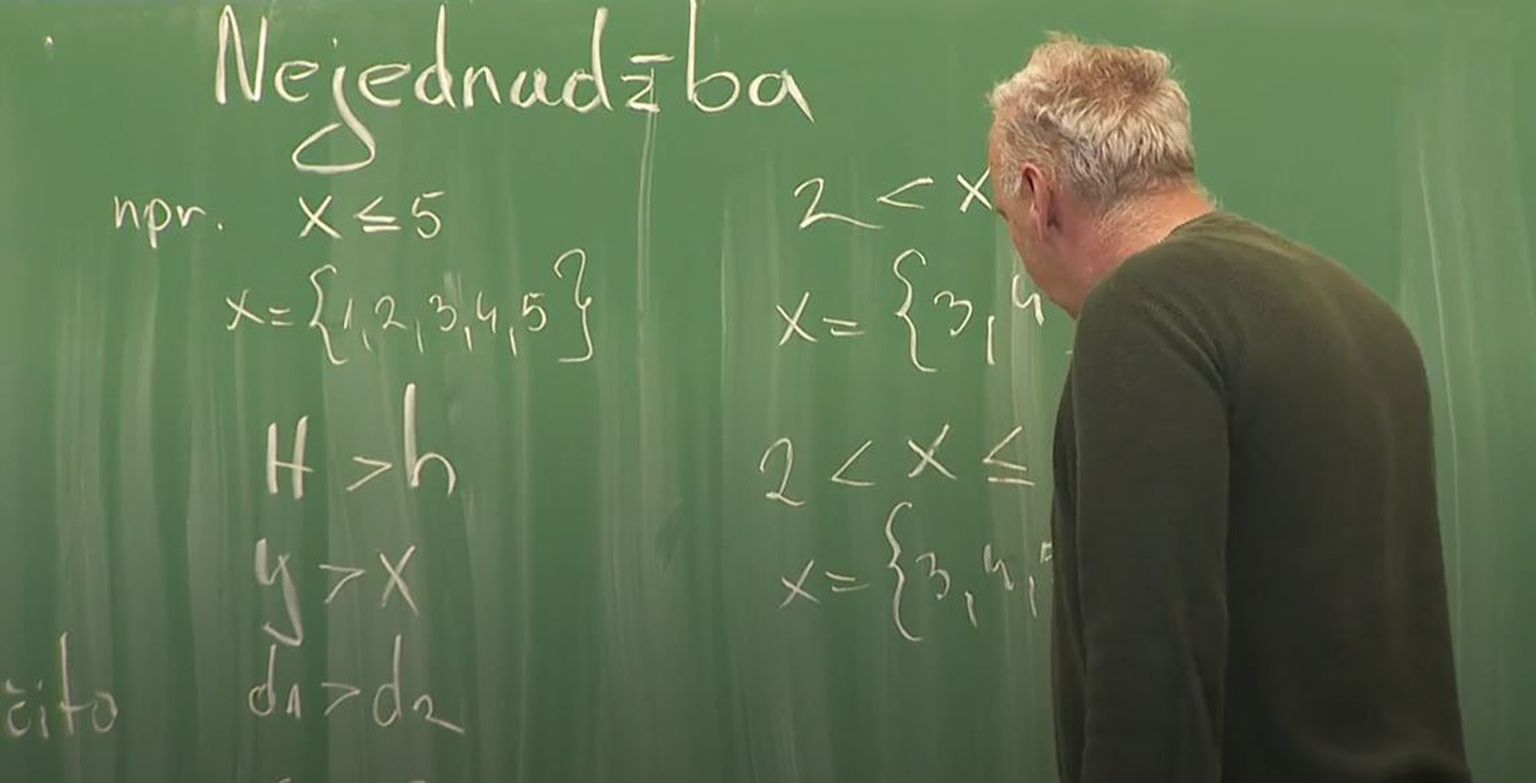 Nejednadžba
npr. x ≤ 5
x = {1, 2, 3, 4, 5}
H > h
y > x
d1 > d2
2 < x
x = {3, 4
2 < x ≤
x = {3, 4,